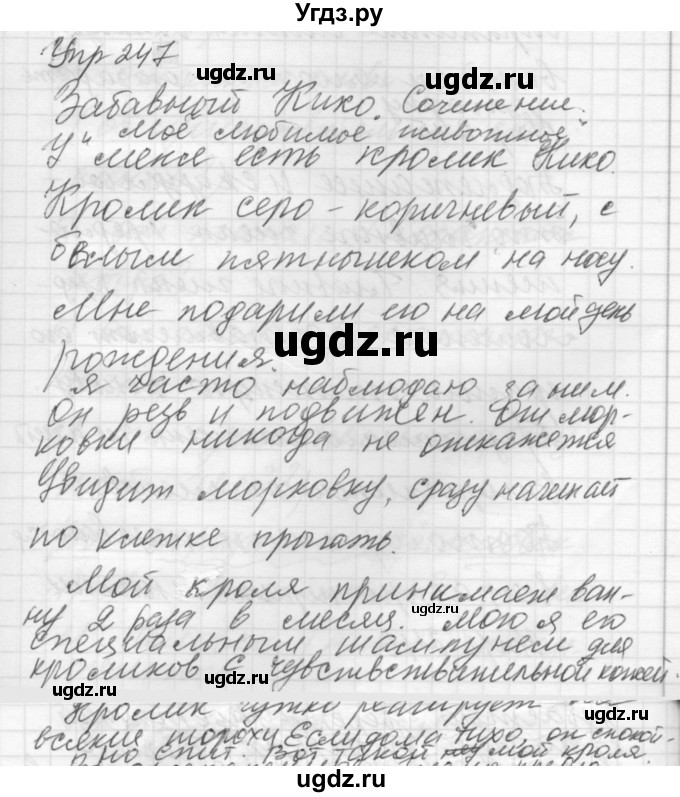 Угдз.ру
Упр 247
ugdz.ru
ugdz.ru
Забавный Кико. Сочинение.
"Моё любимое животное"
У меня есть кролик Кико.
Кролик серо-коричневый, с
белым пятнышком на носу.
Мне подарили его на мой день
ugdz.ru
рождения.
Я часто наблюдаю за ним.
Он резв и подвижен. От мор-
ковки никогда не откажется
Увидит морковку, сразу начинает
по клетке прыгать.
Мой кроля принимает ван-
ну 2 раза в месяц. Мою я его
ugdz.ru
специальным шампунем для
кроликов с чувствствательной кожей.
ugdz.ru
ugdz.ru
Кролик чутко реагирует на
всякие шорохи Если дома тихо, он спокой-
но спит. Вот такой мой кроля.
ugdz.ru